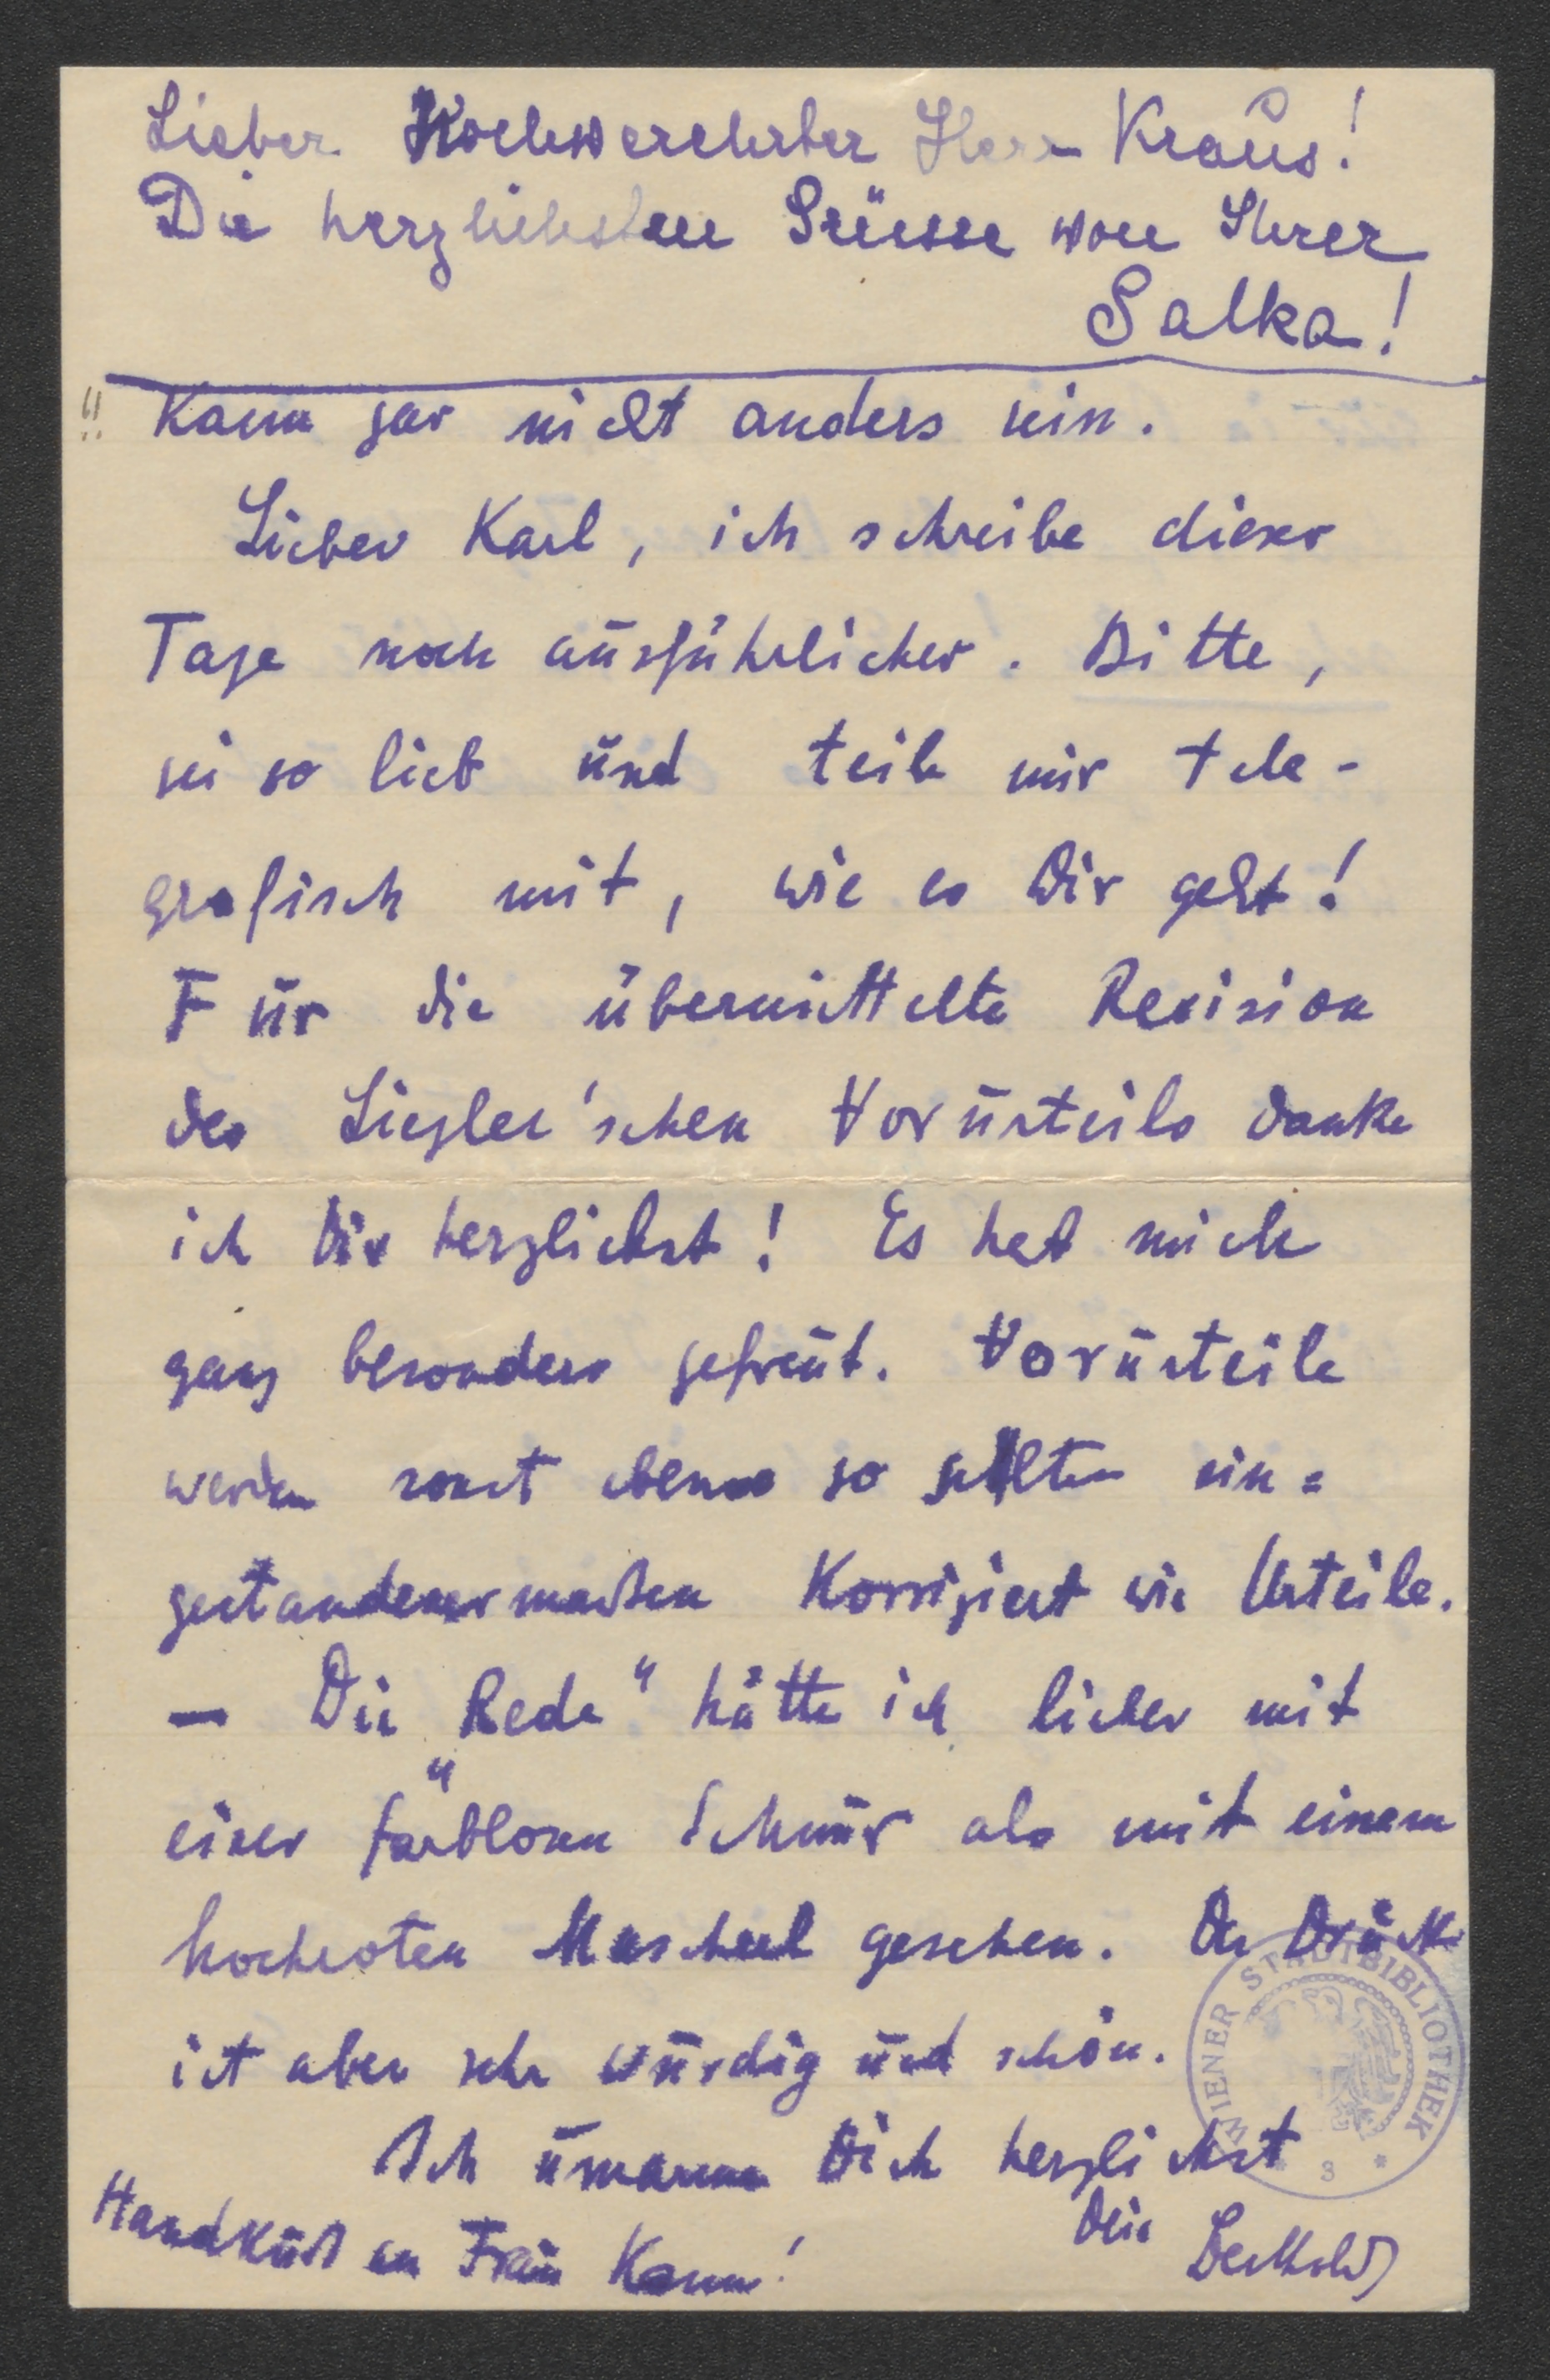 Lieber Hochwverehrter Herr Kraus!
Die herzlichsten Grüsse von Ihrer
Salka!
!! Kann gar nicht anders sein.
Lieber Karl, ich schreibe dieser
Tage noch ausführlicher. Bitte,
sei so lieb und teile mir tele-
grafisch mit, wie es Dir geht!
Für die übermittelte Revision
des Liegler'schen Vorurteils danke
ich Dir herzlichst! Es hat mich
ganz besonders gefreut. Vorurteile
werden sonst ebenso so selten ein=
gestandenermaßen korrigiert wie Urteile.
— Die „Rede" hätte ich lieber mit
einer farblosen Schnur als mit einem
hochroten Mascherl gesehen. Der Druck
ist aber sehr würdig und schön.
Ich umarme Dich herzlichst
Dein Berthold
Handkuß an Frau Kann!
WIENER STADTBIBLIOTHEK
* 3 *